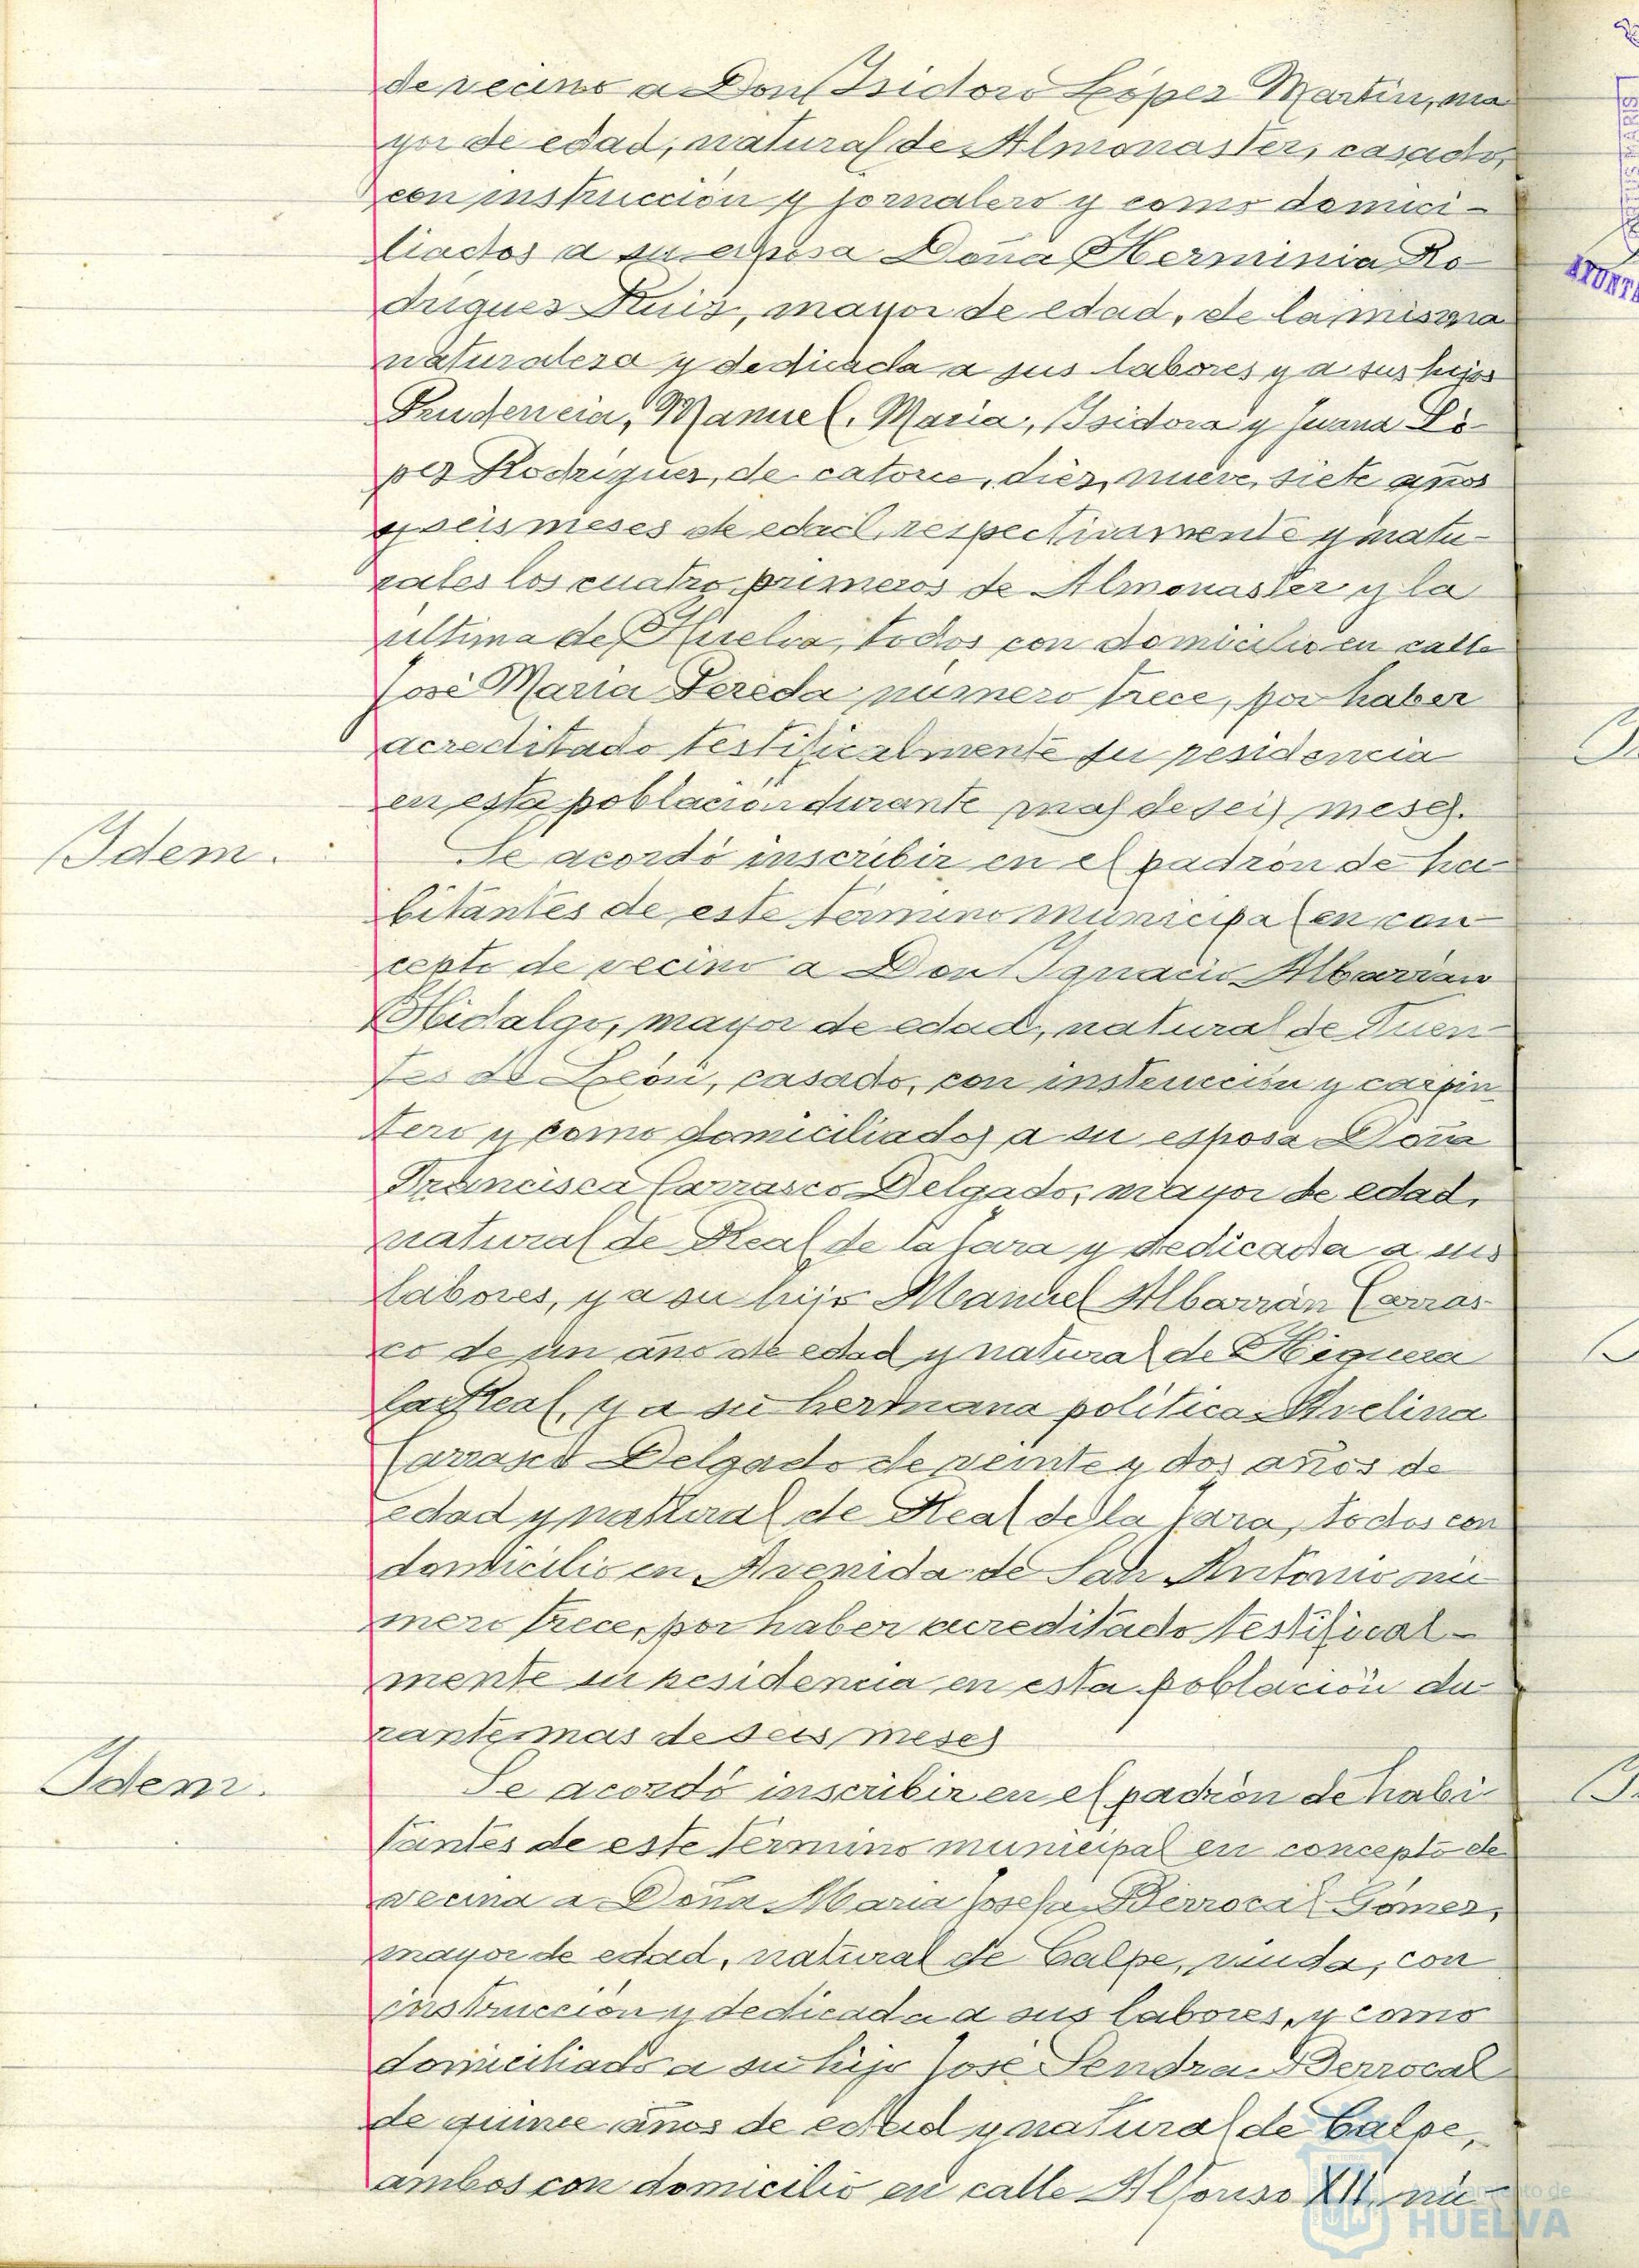 de vecino a Don Isidoro López Martín, ma
yor de edad, natural de Almonaster, casado,
con instrucción y jornalero y como domici-
liados a su esposa Doña Herminia Ro
driguez Ruiz, mayor de edad, de la misma
naturaleza y dedicada a sus labores y a sus hijos
Prudencia, Manuel, Maria, Isidora y Juana Ló-
pez Rodriguez, de catorce, diez, nueve, siete años
y seis meses de edad, respectivamente y natu-
rales los cuatro primeros de Almonaster y la
última de Huelva, todos con domicilio en calle
José Maria Pereda número trece, por haber
acreditado testificalmente su residencia
en esta población durante mas de seis meses.
Idem.
Se acordó inscribir en el padrón de ha-
bitantes de este término municipal en con-
cepto de vecino a Don Ignacio Albarrán
Hidalgo, mayor de edad, natural de Fuen-
tes de León, casado, con instrucción y carpin
tero y como domiciliados a su esposa Doña
Francisca Carrasco Delgado, mayor de edad,
natural de Real de la Jara y dedicada a sus
labores, y a su hijo Manuel Albarrán Carras-
co de un año de edad y natural de Higuera
la Real, y a su hermana politica Avelina
Carrasco Delgado de veinte y dos años de
edad y natural de Real de la Jara, todos con
domicilio en Avenida de San Antonio nú
mero trece, por haber acreditado testifical-
mente su residencia en esta población du-
rante mas de seis meses
Idem.
Se acordó inscribir en el padrón de habi-
tantes de este término municipal en concepto de
vecina a Doña Maria Josefa Berrocal Gómez,
mayor de edad, natural de Calpe, viuda, con
instrucción y dedicada a sus labores, y como
domiciliado a su hijo José Sendra Berrocal
de quince años de edad y natural de Calpe,
ambos con domicilio en calle Alfonso XII, nú-
AYUNTA
Ayuntamiento de
HUELVA